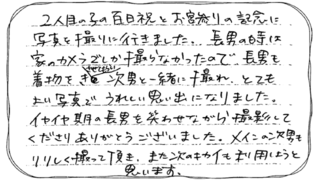 2人目の子の百日祝とお宮参りの記念に
写真を撮りに行きました。長男の時は
家のカメラでしか撮らなかったので長男も
着物をきせてもらい次男と一緒に撮れ、とても
よい写真で うれしい思い出になりました。
イヤイヤ期の長男を笑わせながら撮影して
くださりありがとうございました。メインの次男も
りりしく撮って頂き、また次のキカイも利用しようと
思います。